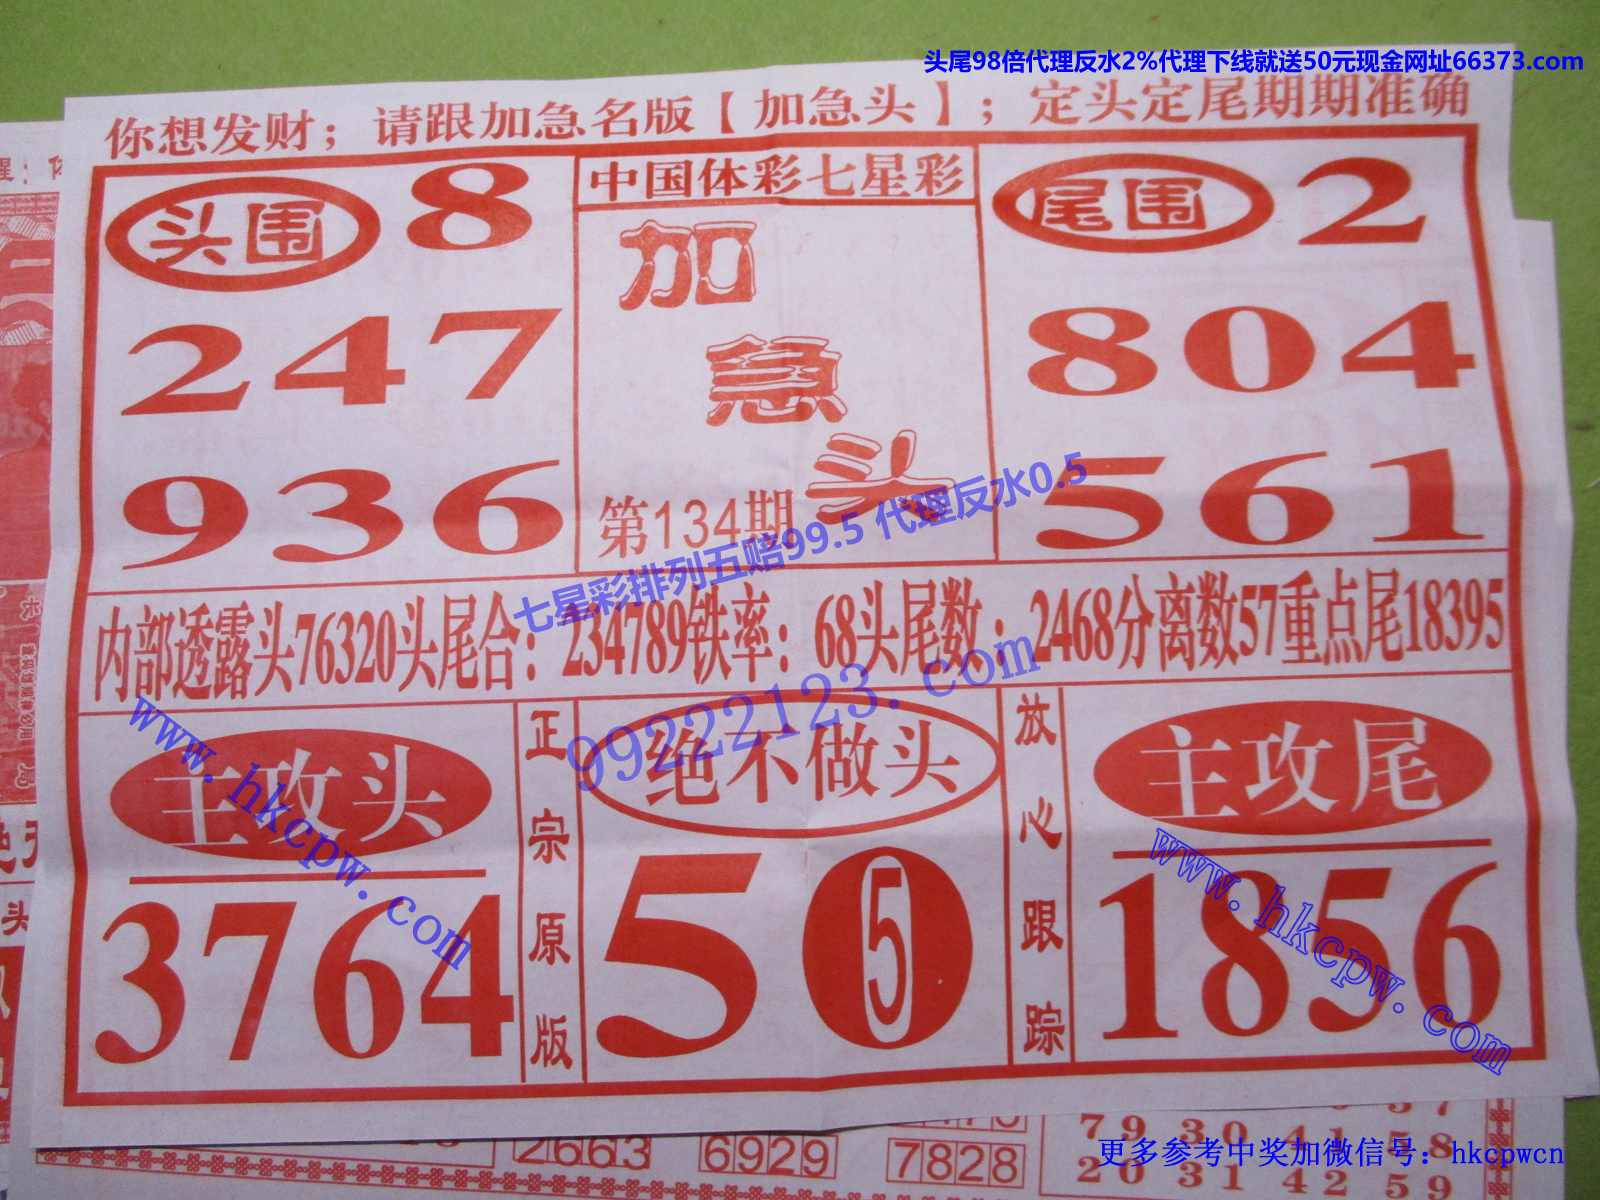 头尾98倍代理反水2%代理下线就送50元现金网址66373.com
你想发财；请跟加急名版【加急头】；定头定尾期期准确
头围 8
247
936
中国体彩七星彩
加
急
头
第134期
尾围 2
804
561
七星彩排列五赔99.5 代理反水0.5
内部透露头76320头尾合：234789铁率：68头尾数：2468分离数57重点尾18395
99222123.com
www.hkcpw.com
主攻头
3764
正宗原版
绝不做头
5 0
5
放心跟踪
主攻尾
1856
www.hkcpw.com
2663 6929 7828
79 30 41 58
20 31 42 59
更多参考中奖加微信号：hkcpwcn